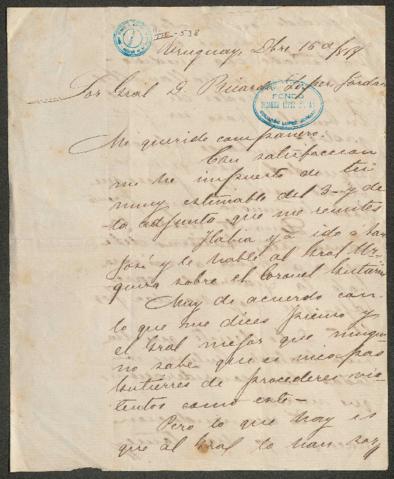 III-538
Uruguay, Dbre 16 de
Sor Gral D. Ricardo Lopez Jordan
FONDO
Me querido compañero.
Con satisfaccion
me he impuesto de tu
muy estimable del 3 y de
la adjunta que me remites
Habia yá ido a San
José y le hablé al Gral Ur
quiza sobre el Coronel Gutierr
Muy de acuerdo con
lo que me dices pienso y
el Gral mejor que ningu
no sabe que es incapas
Gutierres de procederes
como este-
Pero lo que hay es
que al Gral lo han